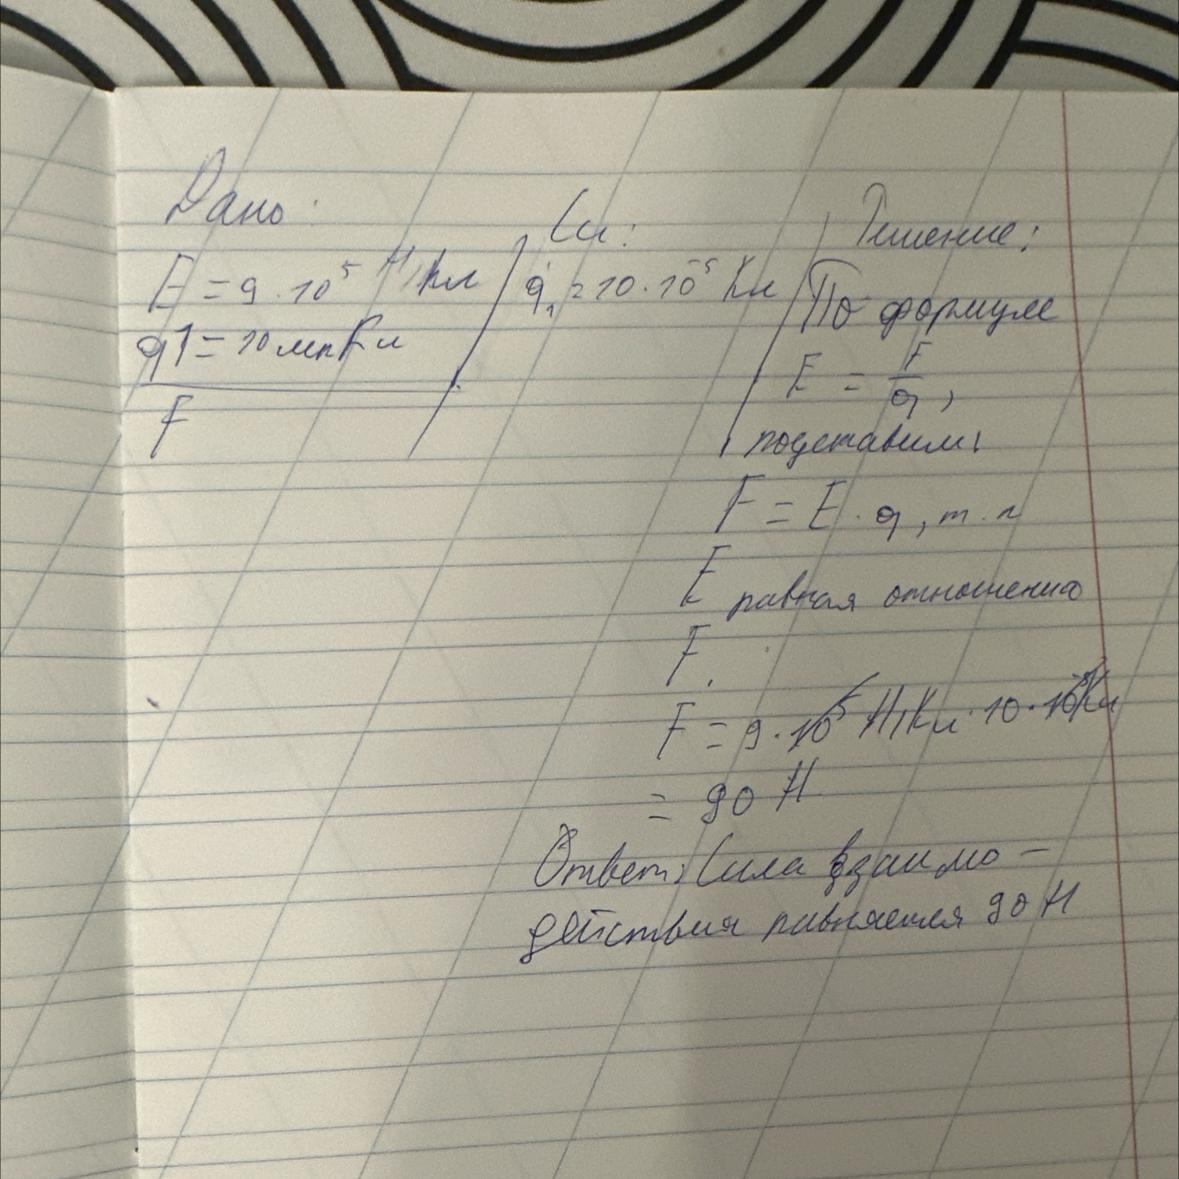 Дано:
E = 9 · 10⁵ Н/Кл
q1 = 10 мкКл
F
Си:
q₁ = 10 · 10⁻⁵ Кл
Решение:
По формуле
E = F/q,
подставим:
F = E · q, т.к
E равная отношению
F.
F = 9 · 10⁵ Н/Кл · 10 · 10⁻⁵ Кл
= 90 Н
Ответ: Сила взаимо-
действия равняется 90 Н